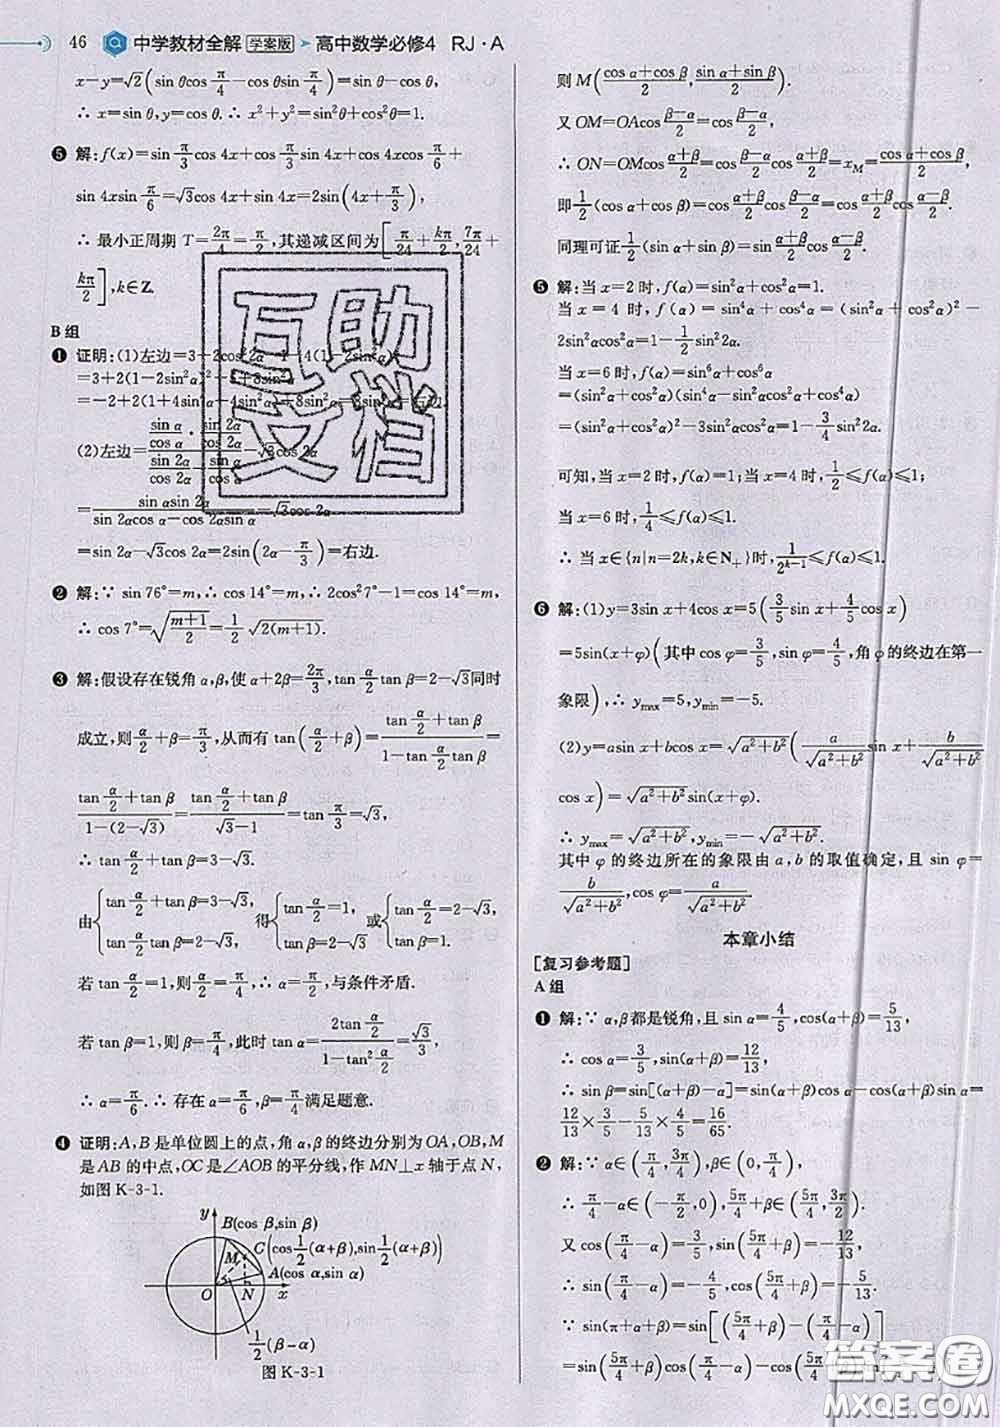 46 中学教材全解 学案版 ➤ 高中数学必修4 RJ·A
x−y=√2(sin θcos π/4−cos θsin π/4)=sin θ−cos θ,
∴ x=sin θ,y=cos θ.∴ x²+y²=sin²θ+cos²θ=1.
❺ 解:f(x)=sin π/3 cos 4x+cos π/3 sin 4x+cos 4xcos π/6+
sin 4xsin π/6=√3cos 4x+sin 4x=2sin(4x+π/3),
∴ 最小正周期 T=2π/4=π/2,其递减区间为[π/24+kπ/2,7π/24+
kπ/2],k∈Z.
B 组
❶ 证明:(1)左边=3+2cos²2α−1−4(1−2sin²α)
=3+2(1−2sin²α)²−5+8sin²α
=−2+2(1+4sin⁴α−4sin²α)+8sin²α=8sin⁴α=右边.
(2)左边=(sin α/cos α·sin 2α/cos 2α)/(sin 2α/cos 2α−sin α/cos α)−√3cos 2α
=sin αsin 2α/(sin 2αcos α−cos 2αsin α)−√3cos 2α
=sin 2α−√3cos 2α=2sin(2α−π/3)=右边.
❷ 解:∵ sin 76°=m,∴ cos 14°=m,∴ 2cos²7°−1=cos 14°=m,
∴ cos 7°=√((m+1)/2)=1/2 √(2(m+1)).
❸ 解:假设存在锐角 α,β,使 α+2β=2π/3,tan α/2 tan β=2−√3同时
成立,则α/2+β=π/3,从而有 tan(α/2+β)=(tan α/2+tan β)/(1−tan α/2 tan β)=
(tan α/2+tan β)/(1−(2−√3))=(tan α/2+tan β)/(√3−1)=tan π/3=√3,
∴ tan α/2+tan β=3−√3.
由{tan α/2+tan β=3−√3, tan α/2 tan β=2−√3, 得{tan α/2=1, tan β=2−√3 或{tan α/2=2−√3, tan β=1.
若 tan α/2=1,则α/2=π/4,∴ α=π/2,与条件矛盾.
若 tan β=1,则 β=π/4,此时 tan α=2tan α/2/(1−tan² α/2)=√3/3,
∴ α=π/6.∴ 存在 α=π/6,β=π/4满足题意.
❹ 证明:A,B 是单位圆上的点,角 α,β 的终边分别为 OA,OB,M
是 AB 的中点,OC 是∠AOB 的平分线,作 MN⊥x 轴于点 N,
如图 K-3-1.
y
B(cos β,sin β)
M C(cos 1/2(α+β),sin 1/2(α+β))
A(cos α,sin α)
O N x
1/2(β−α)
图 K-3-1
则 M((cos α+cos β)/2,(sin α+sin β)/2)
又 OM=OAcos (β−α)/2=cos (β−α)/2,
∴ ON=OMcos (α+β)/2=cos (β−α)/2 cos (α+β)/2=x_M=(cos α+cos β)/2,
即1/2(cos α+cos β)=cos (α+β)/2 cos (β−α)/2=cos (α+β)/2 cos (α−β)/2.
同理可证1/2(sin α+sin β)=sin (α+β)/2 cos (α−β)/2.
❺ 解:当 x=2 时,f(α)=sin²α+cos²α=1.
当 x=4 时,f(α)=sin⁴α+cos⁴α=(sin²α+cos²α)²−
2sin²αcos²α=1−1/2 sin²2α.
当 x=6 时,f(α)=sin⁶α+cos⁶α
=(sin²α+cos²α)(sin⁴α−sin²αcos²α+cos⁴α)
=(sin²α+cos²α)²−3sin²αcos²α=1−3/4 sin²2α.
可知,当 x=2时,f(α)=1;当 x=4时,1/2≤f(α)≤1;
当 x=6时,1/4≤f(α)≤1.
∴ 当 x∈{n|n=2k,k∈N₊}时,1/2^(k−1)≤f(α)≤1.
❻ 解:(1)y=3sin x+4cos x=5(3/5 sin x+4/5 cos x)
=5sin(x+φ)(其中 cos φ=3/5,sin φ=4/5,角 φ 的终边在第一
象限),∴ y_max=5,y_min=−5.
(2)y=asin x+bcos x=√(a²+b²)(a/√(a²+b²) sin x+b/√(a²+b²)
cos x)=√(a²+b²)sin(x+φ).
∴ y_max=√(a²+b²),y_min=−√(a²+b²).
其中 φ 的终边所在的象限由 a,b 的取值确定,且 sin φ=
b/√(a²+b²),cos φ=a/√(a²+b²).
本章小结
[复习参考题]
A 组
❶ 解:∵ α,β都是锐角,且 sin α=4/5,cos(α+β)=5/13,
∴ cos α=3/5,sin(α+β)=12/13,
∴ sin β=sin[(α+β)−α]=sin(α+β)cos α−cos(α+β)sin α=
12/13×3/5−5/13×4/5=16/65.
❷ 解:∵ α∈(π/4,3π/4),β∈(0,π/4),
∴ π/4−α∈(−π/2,0),5π/4+β∈(5π/4,3π/2).
又 cos(π/4−α)=3/5,sin(5π/4+β)=−12/13,
∴ sin(π/4−α)=−4/5,cos(5π/4+β)=−5/13.
∵ sin(π+α+β)=sin[(5π/4+β)−(π/4−α)]
=sin(5π/4+β)cos(π/4−α)−cos(5π/4+β)
互助文档
答案圈
MXQE.COM